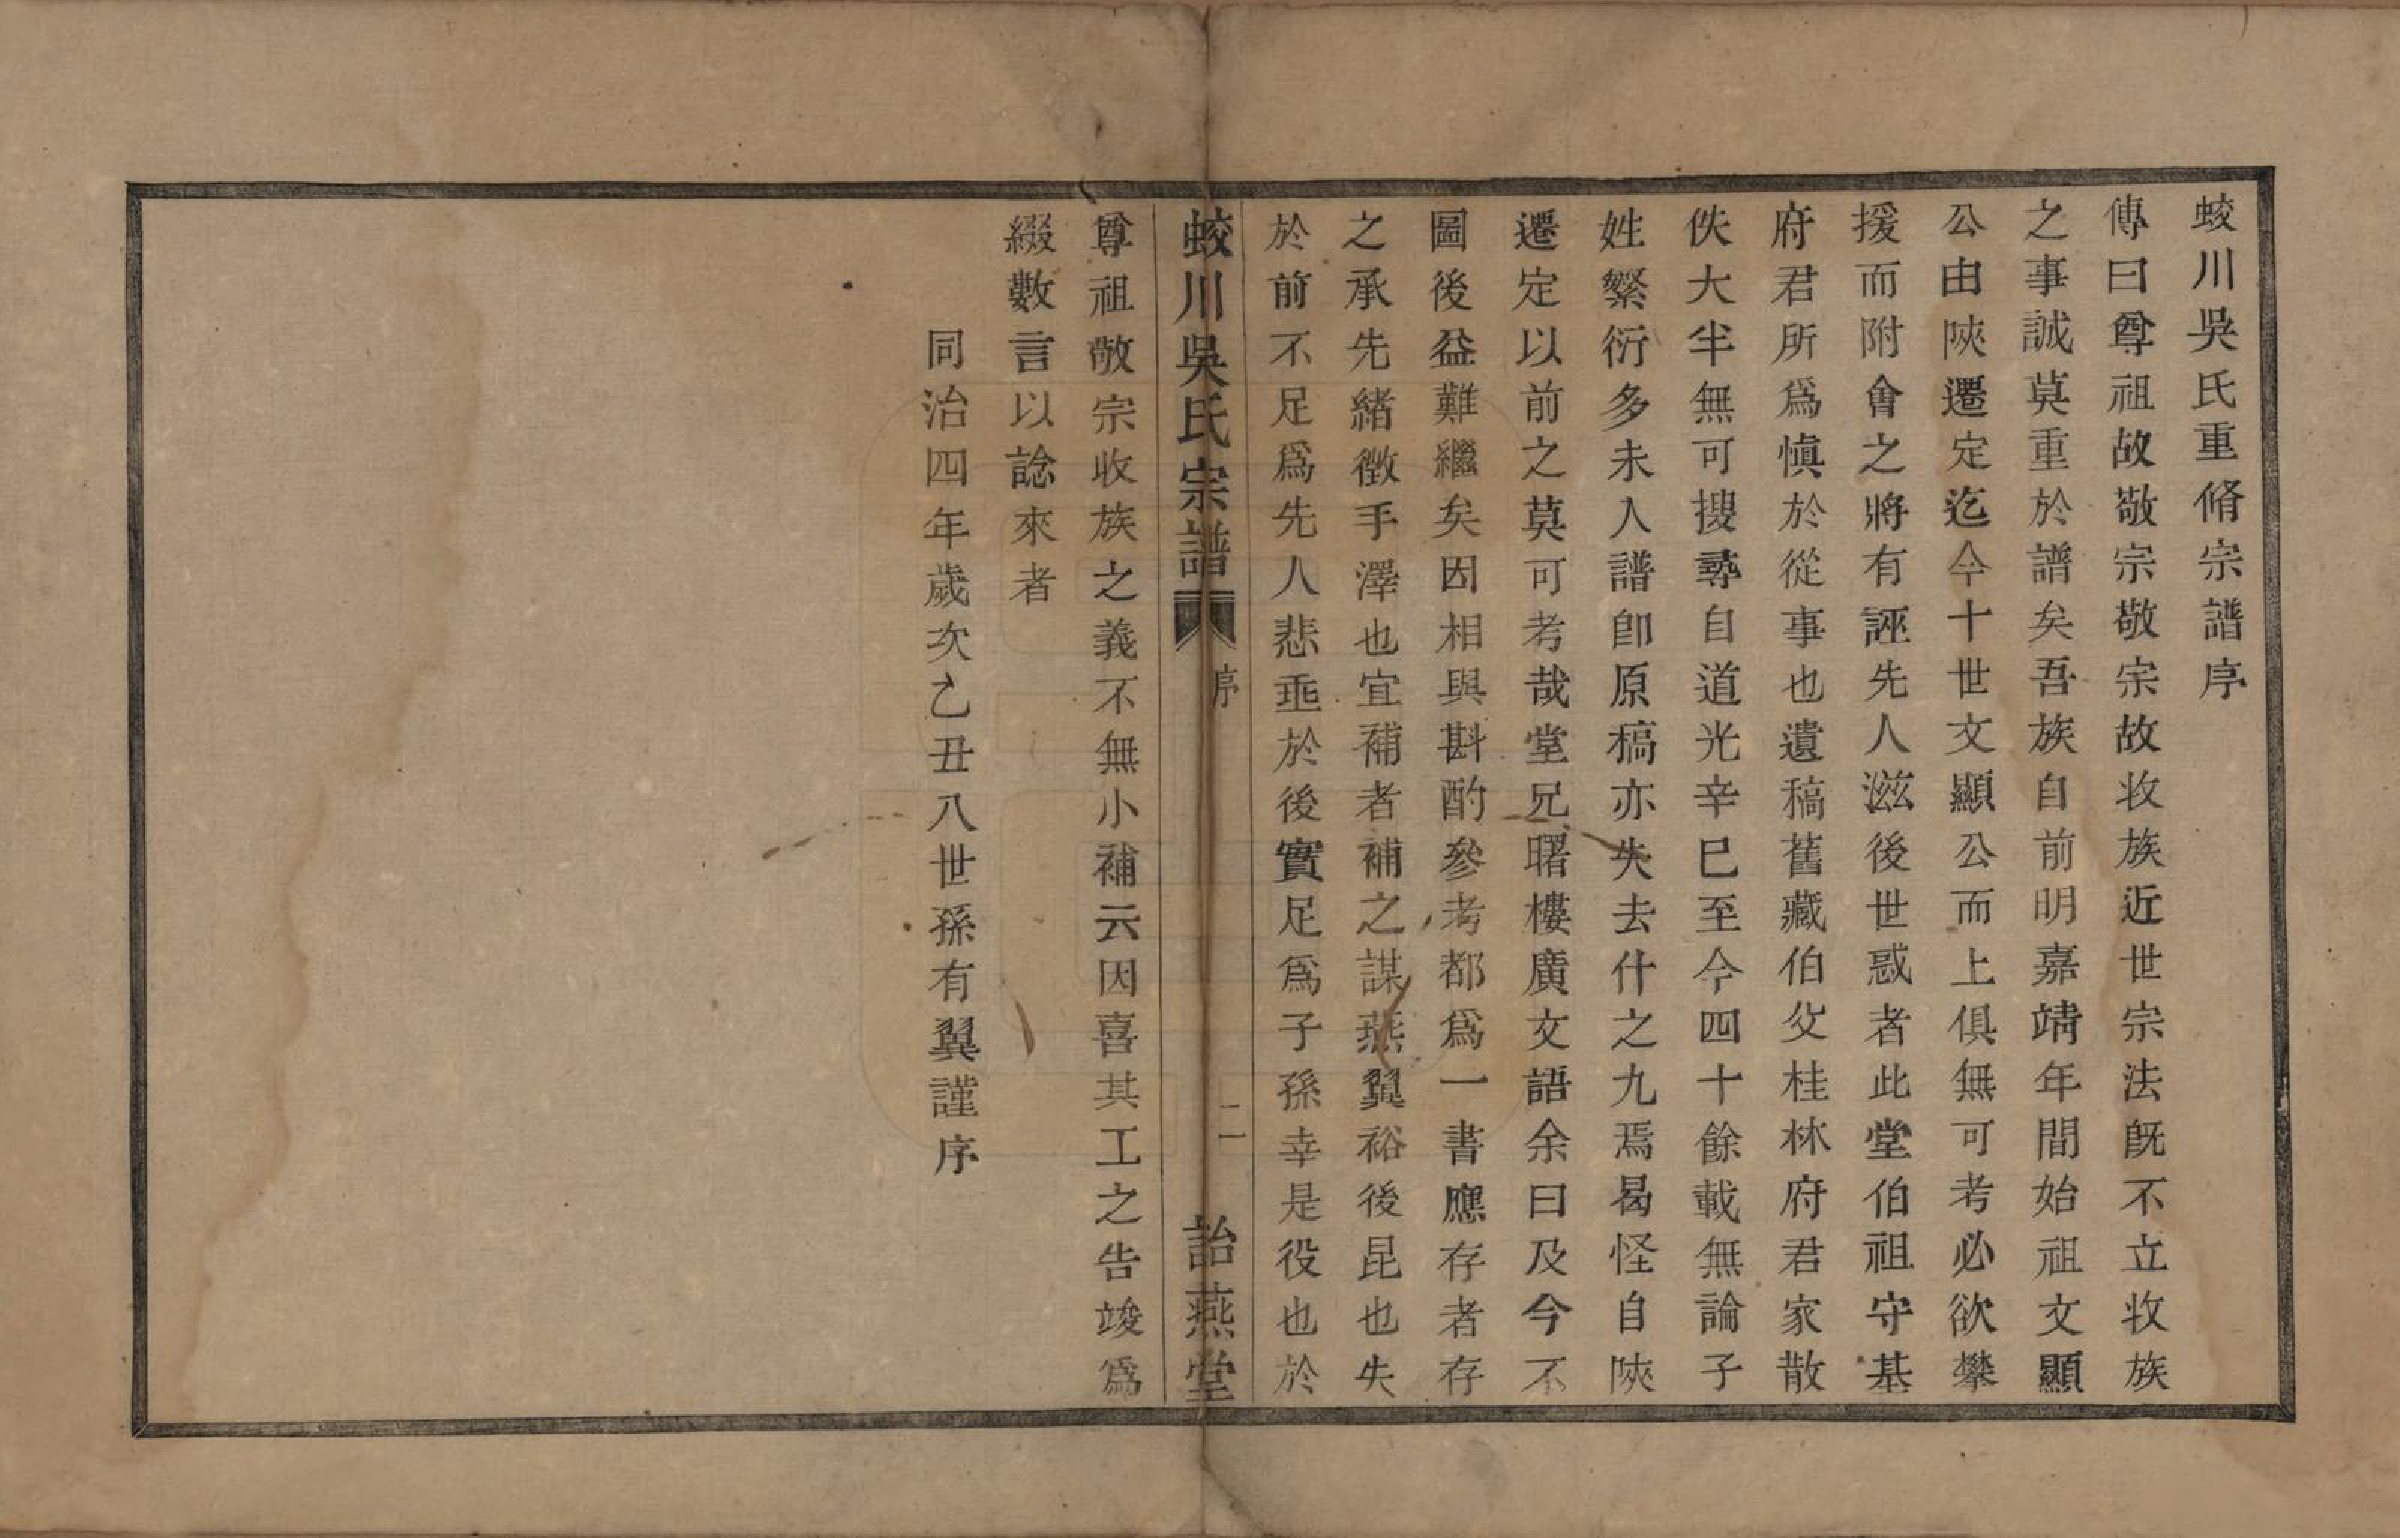 蛟川吳氏重脩宗譜序
傳曰尊祖故敬宗敬宗故收族近世宗法旣不立收族
之事誠莫重於譜矣吾族自前明嘉靖年間始祖文顯
公由陝遷定迄今十世文顯公而上俱無可考必欲攀
援而附會之將有誣先人滋後世惑者此堂伯祖守基
府君所爲愼於從事也遺稿舊藏伯父桂林府君家散
佚大半無可搜尋自道光辛巳至今四十餘載無論子
姓繁衍多未入譜卽原稿亦失去什之九焉曷怪自陝
遷定以前之莫可考哉堂兄曙樓廣文語余曰及今不
圖後益難繼矣因相與斟酌參考都爲一書應存者存
之承先緒徵手澤也宜補者補之謀燕翼裕後昆也失
於前不足爲先人悲垂於後實足爲子孫幸是役也於
蛟川吳氏宗譜 序 二 詒燕堂
尊祖敬宗收族之義不無小補云因喜其工之告竣爲
綴數言以諗來者
同治四年歲次乙丑八世孫有翼謹序